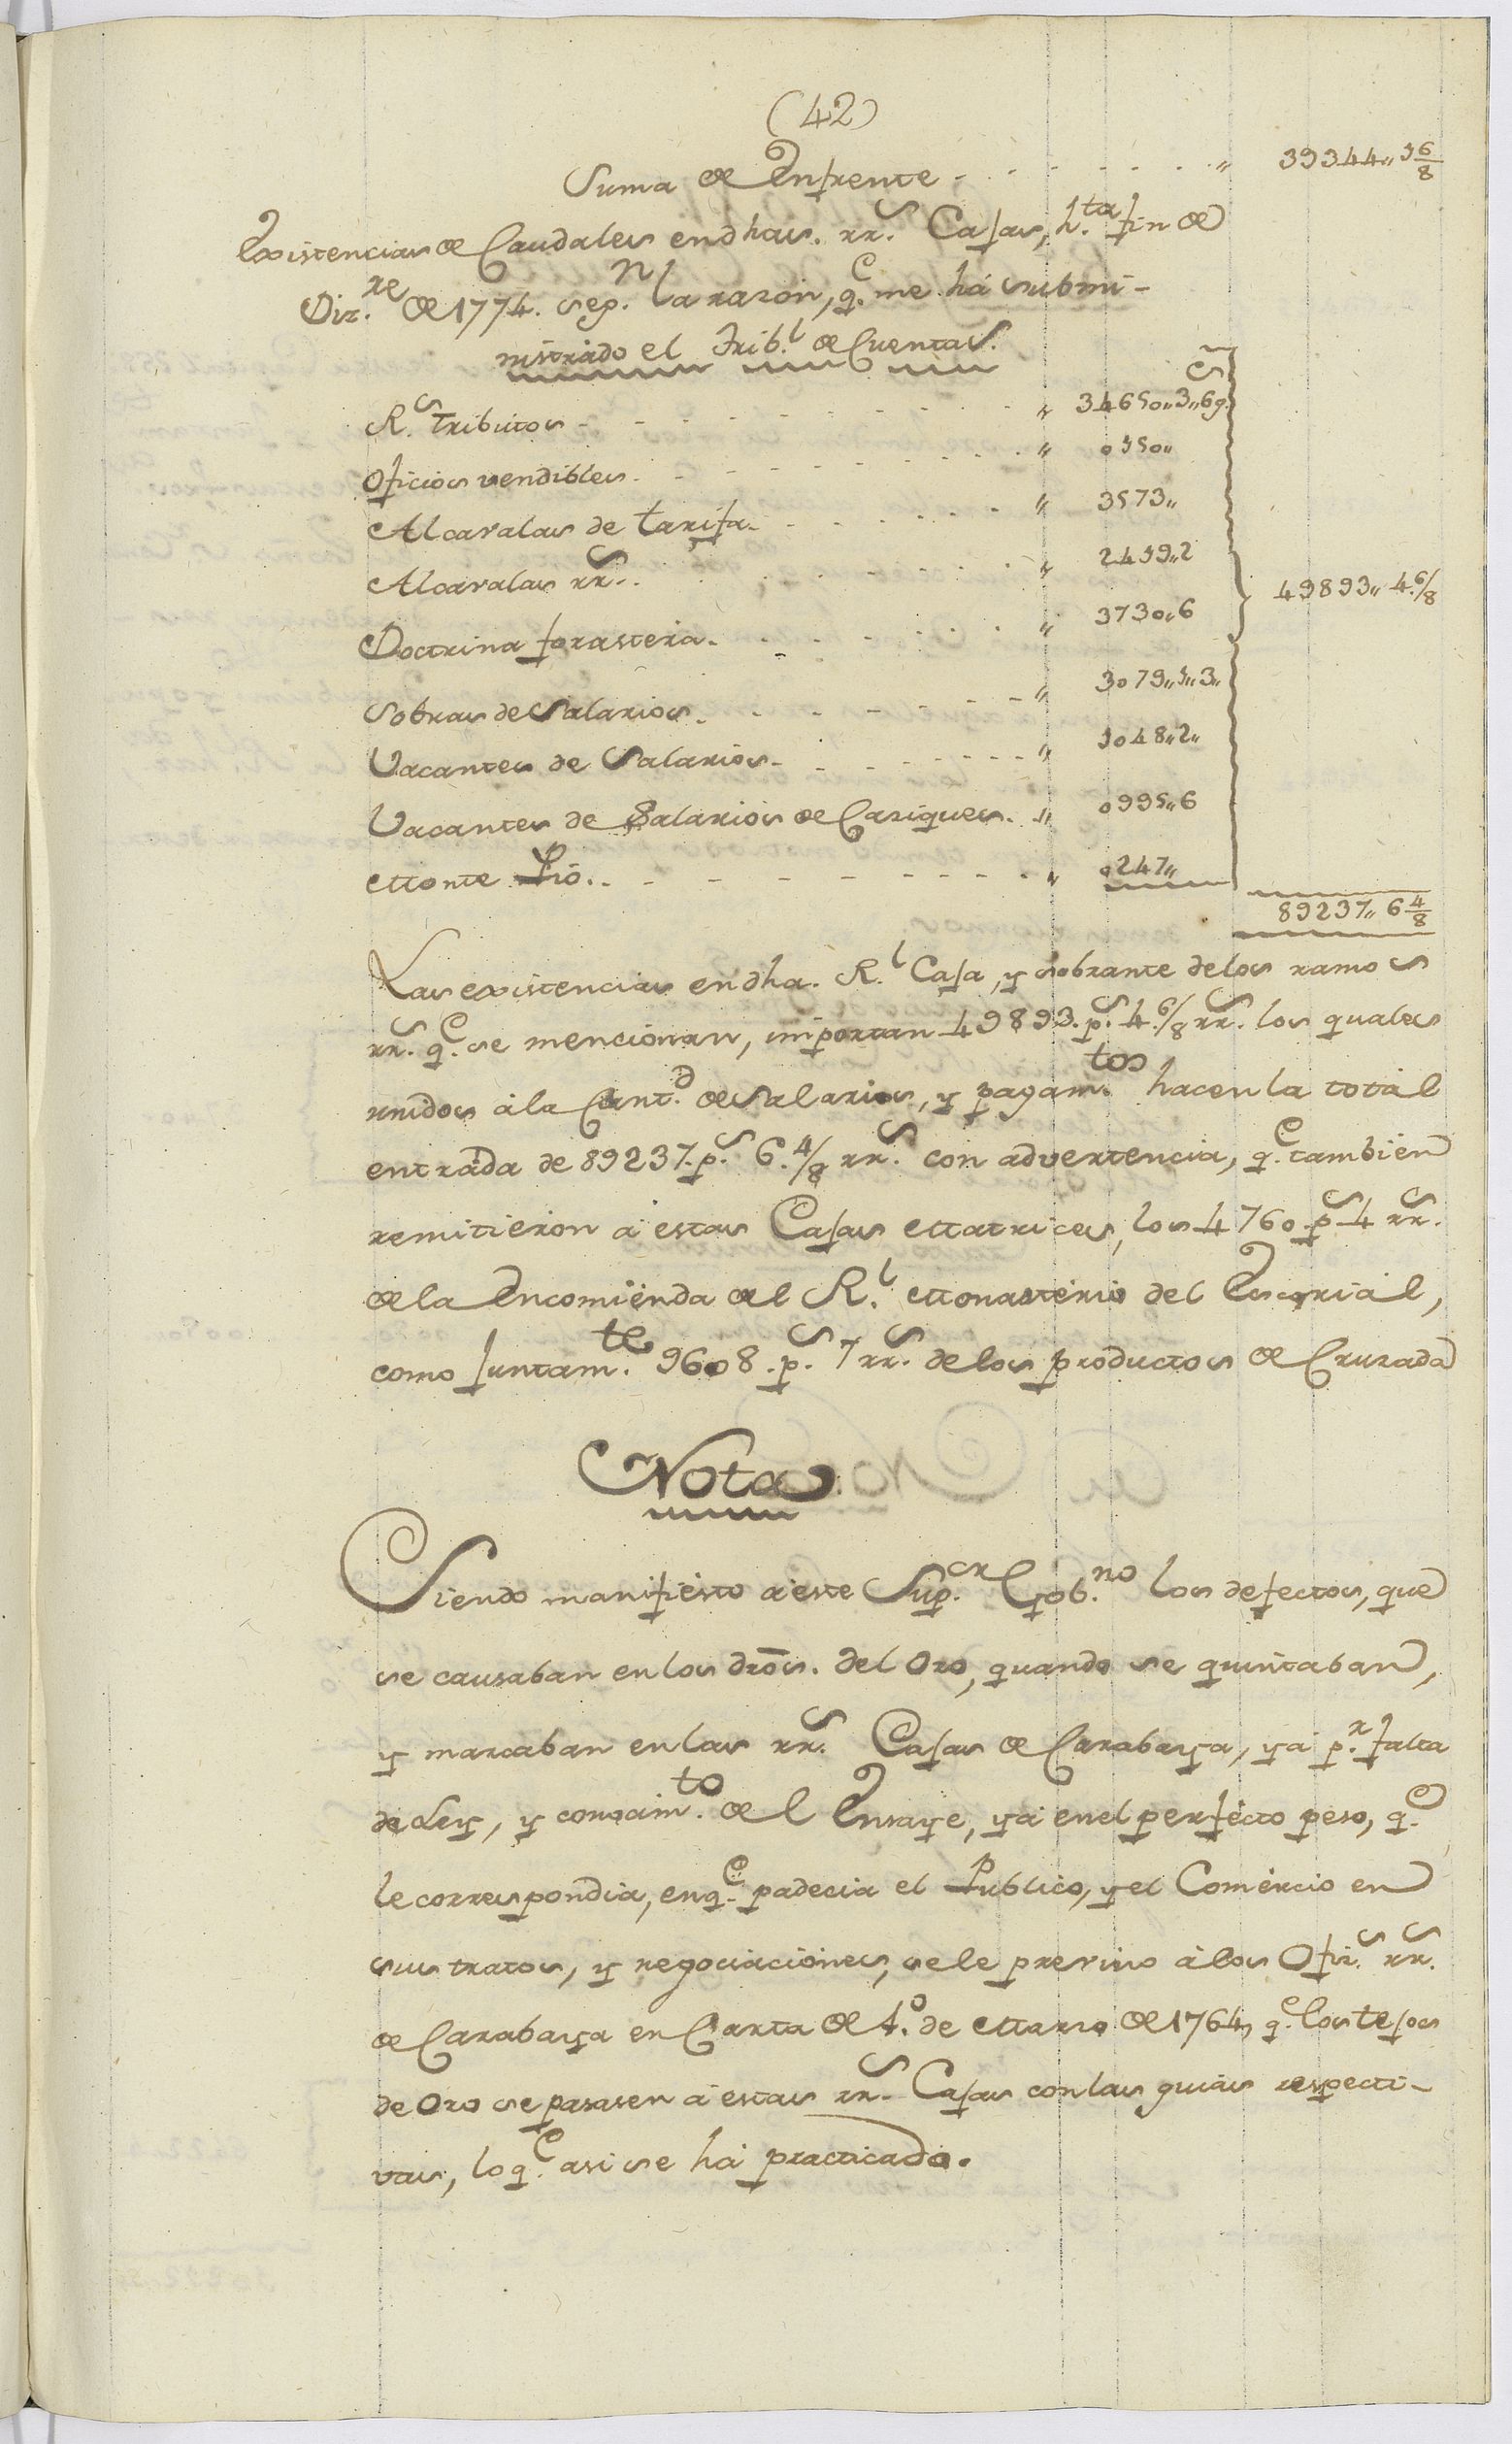 (42)
Suma de Enfrente - - - - - - - " 39344,, 1 6/8
Existencias de Caudales en dhas. rr.s Caxas, h.ta fin de
Diz.re de 1774. seg.n la razon, q.e me há submi-
nistrado el Trib.l de Cuentas.
R.s Tributos - - - - - - - - - " 34650,,3,,6g.s
Oficios vendibles. - - - - - - - - " 0150,,
Alcavalas de tarifa. - - - - - - - " 3573,,
Alcavalas rr.s. - - - - - - - " 2419,,2
Doctrina forastera. - - - - - - - " 3730,,6 } 49893,, 4.6/8
Sobras de Salarios. - - - - - - - " 3079,,1,,3,,
Vacantes de Salarios. - - - - - - - " 1048,,2,,
Vacantes de Salarios de Casiques. " 0995,,6
Monte Pio. - - - - - - - - - " 0247,,
89237,, 6 4/8
Las existencias en dha. R.l Caxa, y sobrante de los ramos
rr.s q.e se mencionan, importan 49893. p.s 4.6/8 rr.s. los quales
unidos á la Cant.d de Salarios, y pagam.tos hacen la total
entrada de 89237. p.s 6.4/8 rr.s con advertencia, q.e tambien
remitieron á estas Caxas Matrices, los 4760. p.s 4 rr.s
de la Encomienda de el R.l Monasterio del Escorial,
como juntam.te 9608. p.s 7 rr.s de los productos de Cruzada
Nota.
Siendo manifiesto á este Sup.or Gob.no los defectos, que
se causaban en los dros. del Oro, quando se quintaban,
y marcaban en las rr.s Caxas de Carabaya, yá p.r falta
de Ley, y conocim.to de el Ensaye, yá en el perfecto peso, q.e
le correspondia, en q.e padecia el Publico, y el Comercio en
sus tratos, y negociaciones, se le previno á los Ofiz.s rr.s
de Carabaya en Carta de 1.o de Marzo de 1764, q.e los texos
de Oro se pasasen á estas rr.s Caxas con las guias respecti-
vas, lo q.e asi se há practicado.